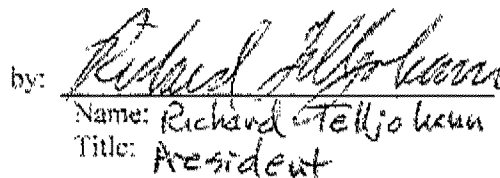 by: Richard Telljohann
Name: Richard Telljohann
Title: President